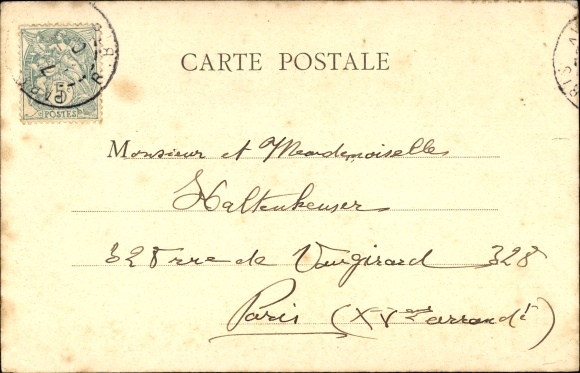 CARTE POSTALE
5c
POSTES
Monsieur et Mesdemoiselles
Haltenheuser
328 rue de Vaugirard 328
Paris (XVe arrondt